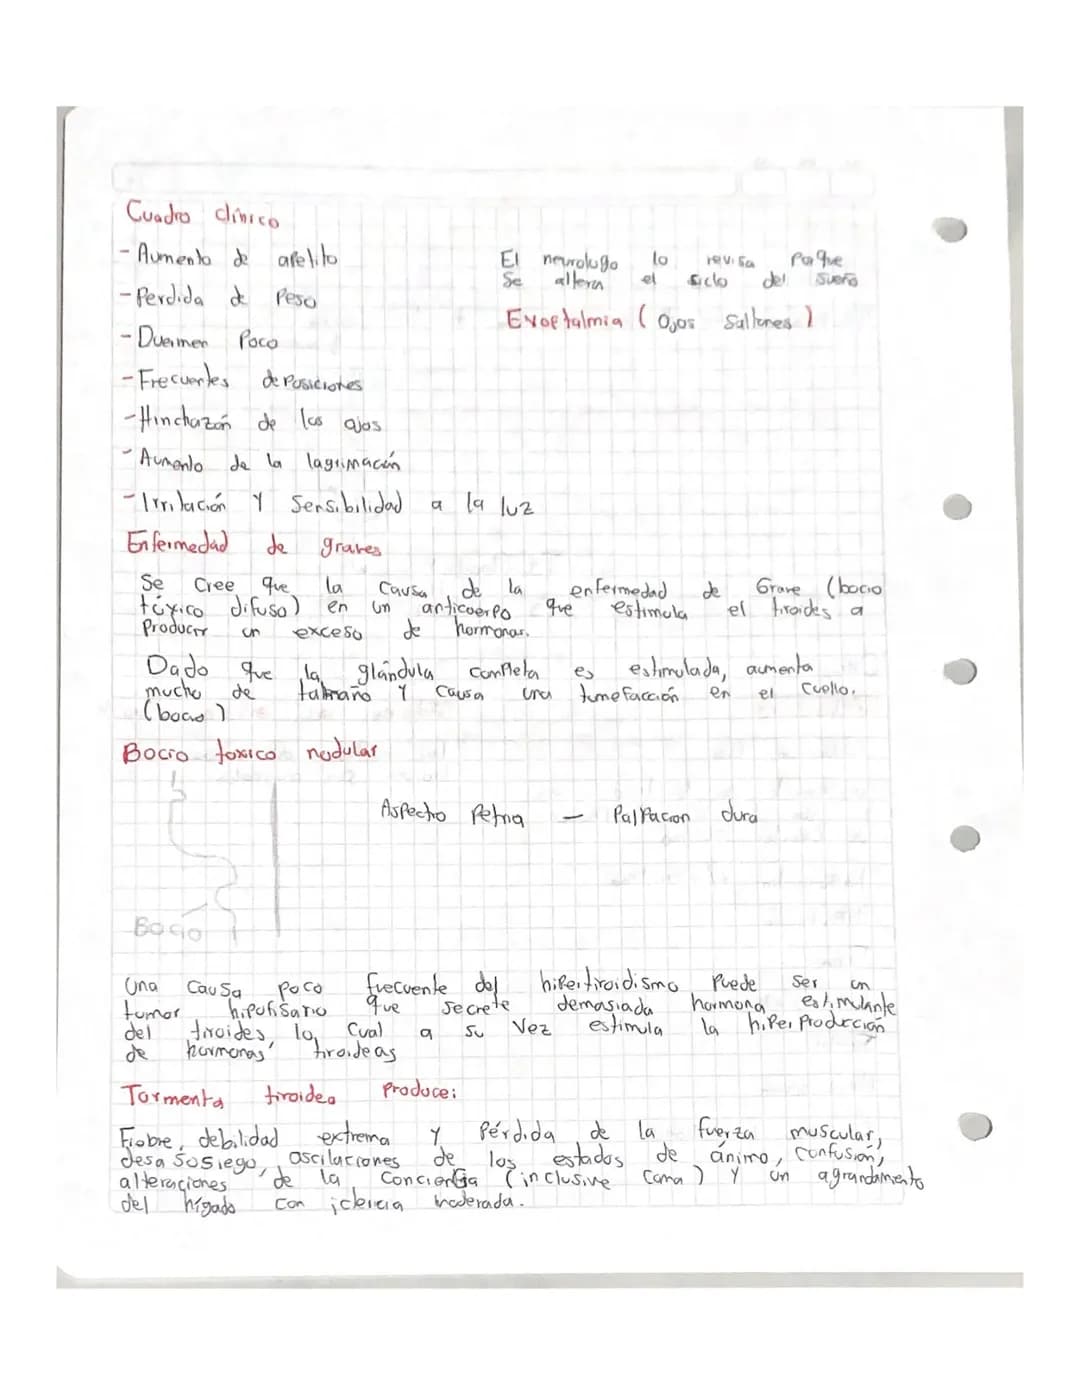 Cuadro clínico
- Aumento de apetito
- Perdida de Peso
- Duermen Poco
- Frecuentes deposiciones
- Hinchazón de los ojos
- Aumento de la lagrimación
- Irritación y Sensibilidad a la luz
El neurologo lo revisa Porque
Se altera el siclo del sueño
Exoftalmia (Ojos Saltones)
Enfermedad de graves
Se Cree que la Causa de la enfermedad de Grave (bocio
tóxico difuso) en un anticuerpo que estimula el tiroides a
Producir un exceso de hormonas.
Dado que la glándula completa es estimulada, aumenta
mucho de tamaño y Causa una tumefacción en el cuello.
(bocio)
Bocio toxico nodular
Aspecto Petria — Palpacion dura
Bocio
Una Causa poco frecuente del hipertiroidismo Puede ser un
tumor hipofisario que secrete demasiada hormona estimulante
del tiroides, la cual a su vez estimula la hiper Producción
de hormonas tiroideas
Tormenta tiroidea Produce:
Fiebre, debilidad extrema y Pérdida de la fuerza muscular,
desasosiego, oscilaciones de los estados de ánimo, confusión,
alteraciones de la conciencia (inclusive coma) y un agrandamiento
del hígado con ictericia moderada.